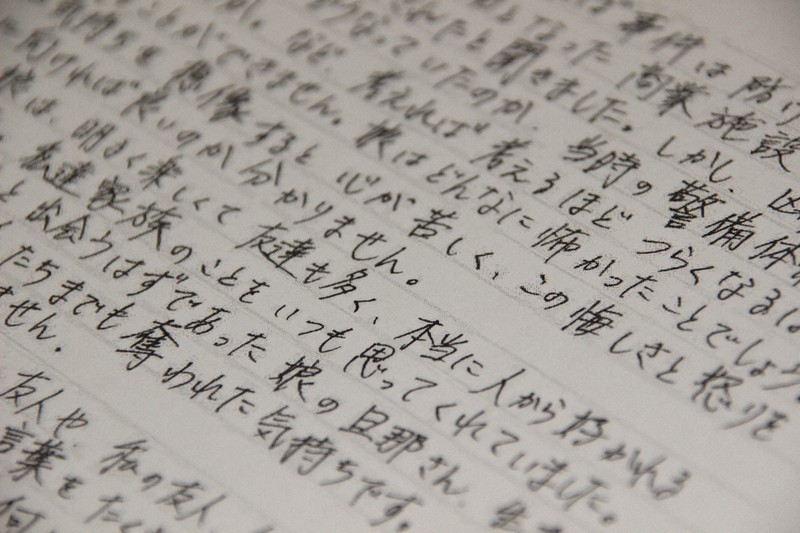 事件は防げ
となった商業施設
されたと聞きました。しかし、
うなっていたのか、当時の警備体
など、考えれば考えるほどつらくなるば
ことができません。娘はどんなに怖かったことでしょう。
気持ちを想像すると心が苦しく、この悔しさと怒りを
向ければ良いのか分かりません。
娘は、明るく楽しくて友達も多く、本当に人から好かれる
私達家族のことをいつも思ってくれていました。
と出会うはずであった娘の旦那さん、生
たちまでも奪われた気持ちです。
ません。
友人や、私の友人
言葉をたく
何